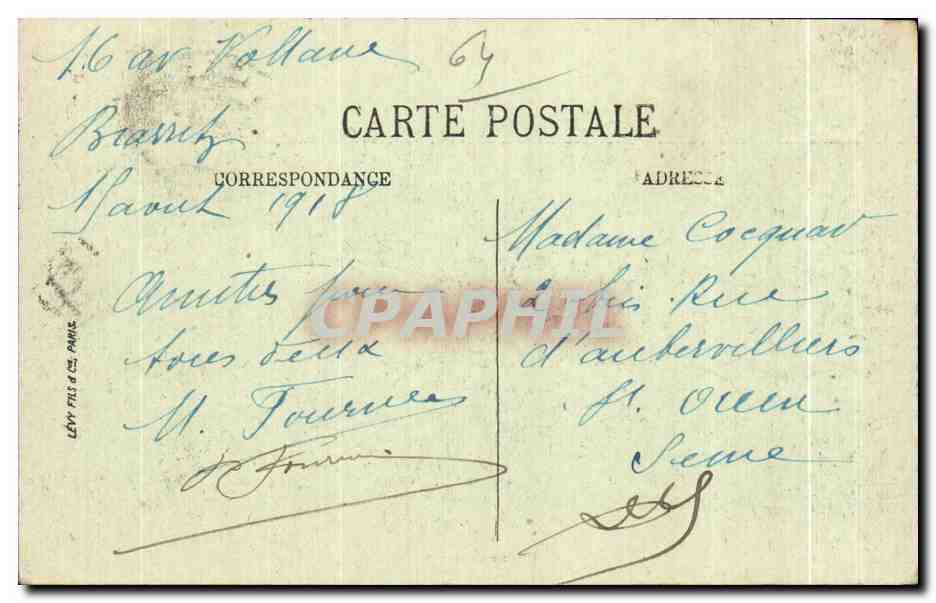 16 av. Voltaire
64
Biarritz
CARTE POSTALE
CORRESPONDANCE
ADRESSE
15 aout 1918
Madame Cocquart
2 bis Rue
d'aubervilliers
St. Ouen
Seine
Amitiés pour
tous deux
M. Tournee
LÉVY FILS & Cie, PARIS
CPAPHIL